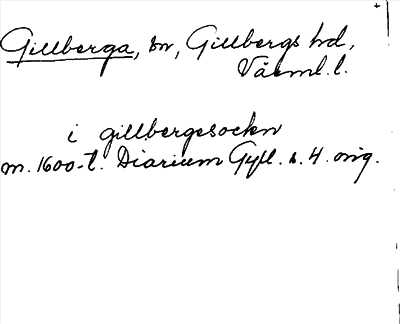 Gillberga, sn, Gillbergs hd,
Värml. l.
i gillbergesockn
m. 1600-t. Diarium Gyll. s. 4. orig.